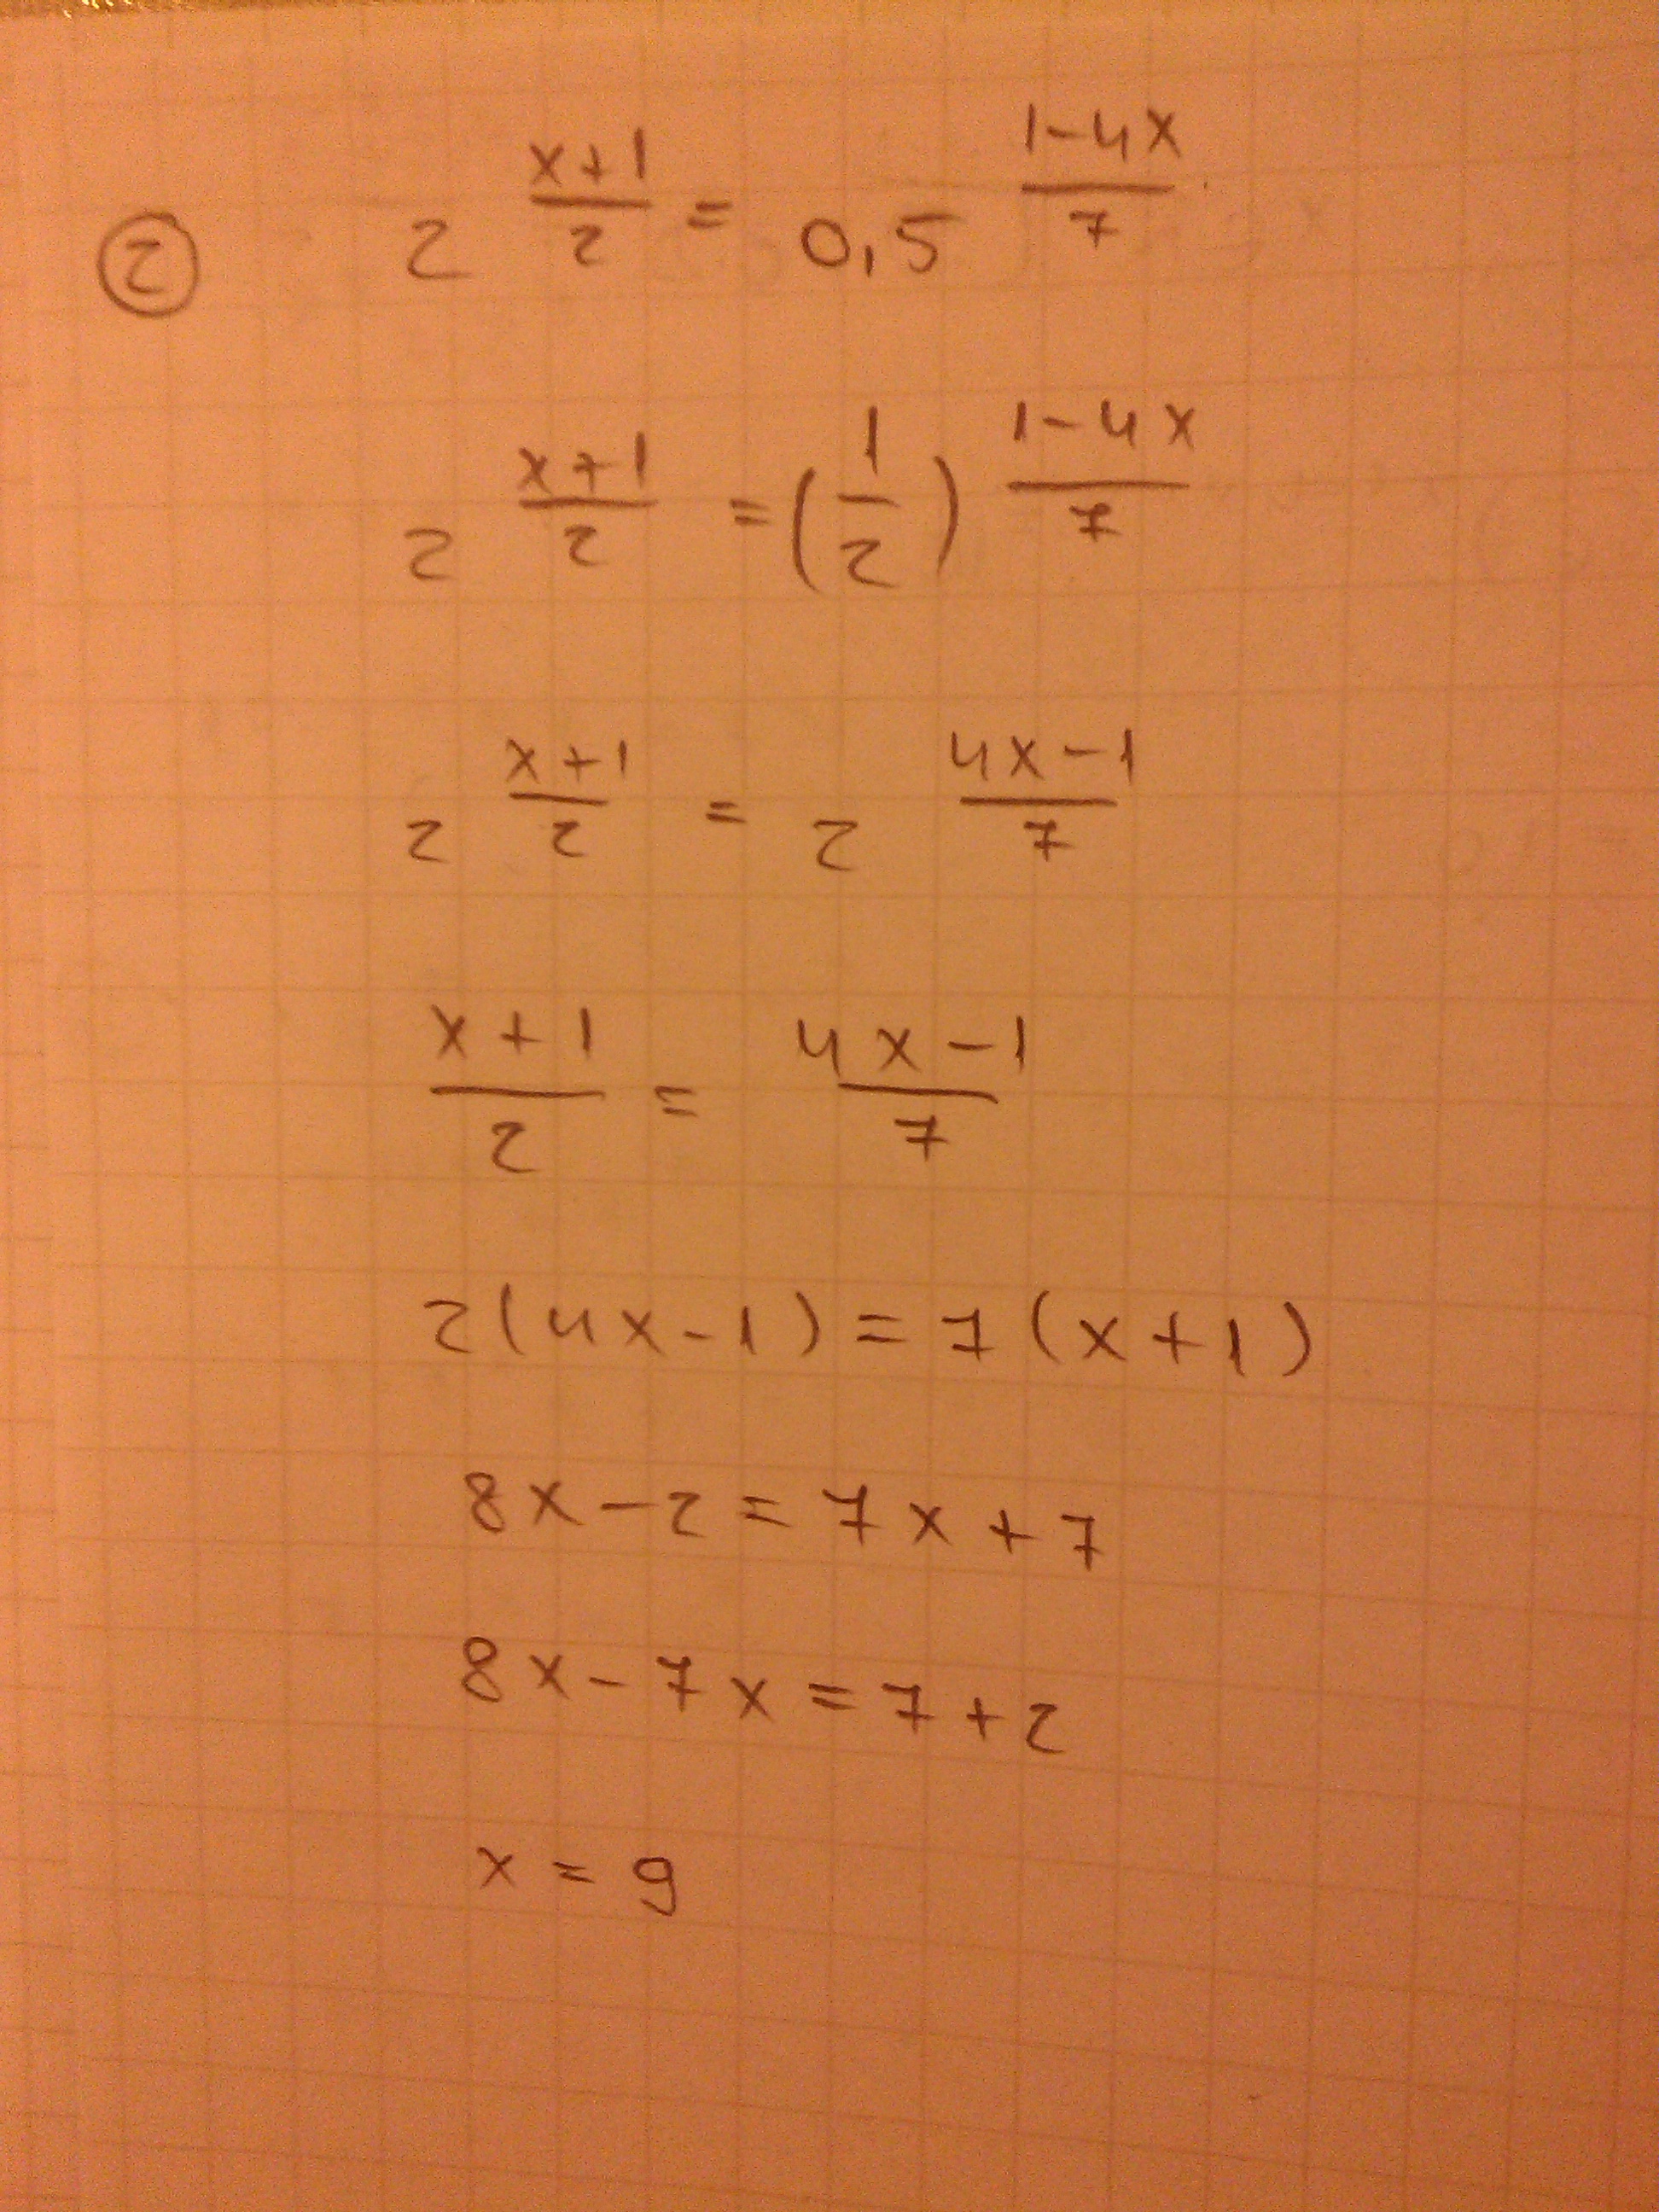 ② 2^{\frac{x+1}{2}} = 0,5^{\frac{1-4x}{7}}
2^{\frac{x+1}{2}} = (\frac{1}{2})^{\frac{1-4x}{7}}
2^{\frac{x+1}{2}} = 2^{\frac{4x-1}{7}}
\frac{x+1}{2} = \frac{4x-1}{7}
2(4x-1) = 7(x+1)
8x-2 = 7x+7
8x-7x = 7+2
x = 9